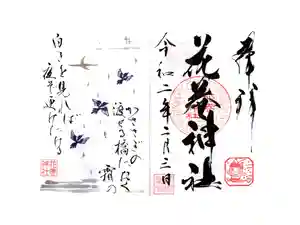 奉拝
花葊神社
令和二年二月三日
かささぎの
渡せる橋におく
霜の
白きを見れば
夜ぞ更けにける